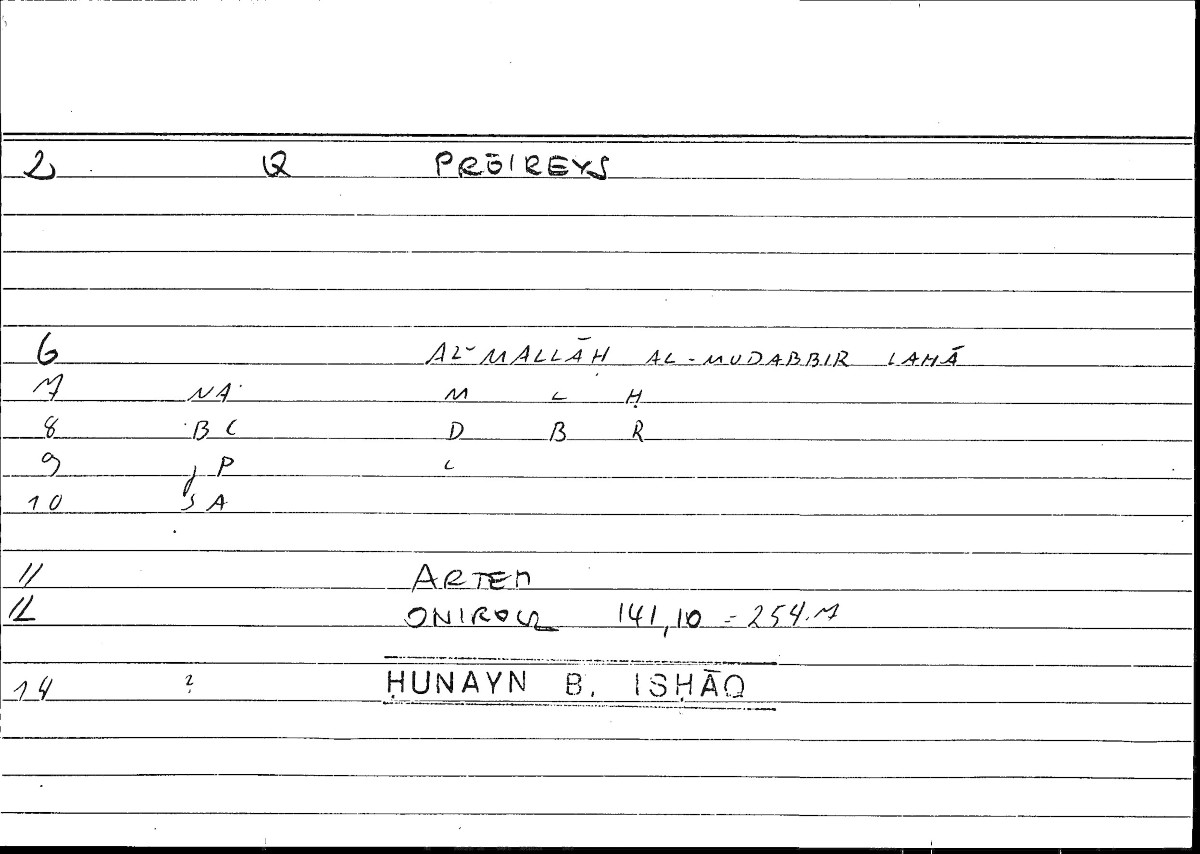 2 Q PRŌIREYS
6 AL-MALLĀḤ AL-MUDABBIR LAHĀ
7 NA M L Ḥ
8 BC D B R
9 JP L
10 SA
11 ARTEM
12 ONIROCR 141,10 = 254.7
14 ? ḤUNAYN B. ISḤĀQ